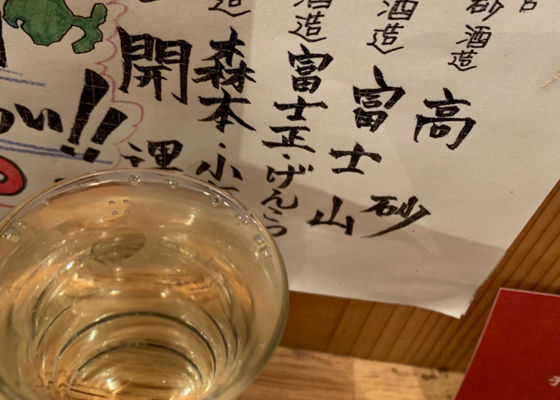 砂酒造
高砂
酒造
富士山
酒造
富士正・げんこつ
造
森本・小
開
い!!